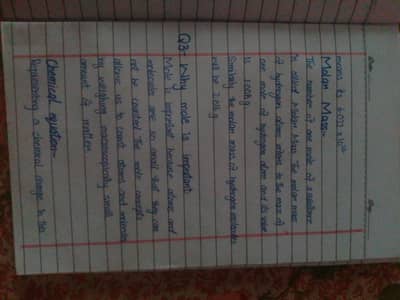 means its 6.022 x 10²³
Molar Mass:-
The number of one mole of a substance
is called Molar Mass. The molar mass
of hydrogen atom refers to the mass of
one mole of hydrogen atom and its value
is 1.008 g
Similarly the molar mass of hydrogen molecules
will be 2.016 g
Q3:- Why mole is important:
Mole is important because atoms and
molecules are so small that they can
not be counted. The mole concepts
allows us to count atoms and molecules
by weighing macroscopically small
amount of matter.
Chemical equation:-
Representing a chemical change is